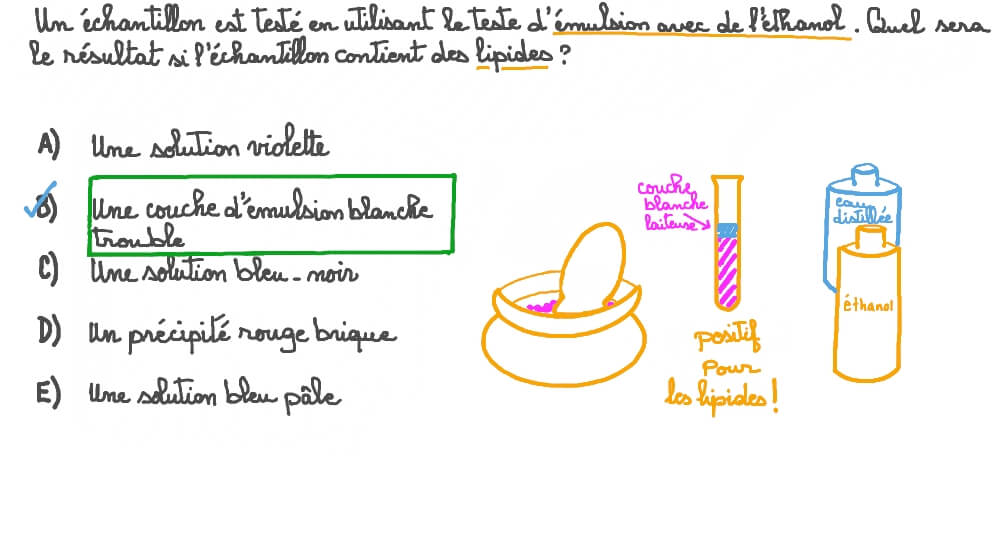 Un échantillon est testé en utilisant le teste d'émulsion avec de l'éthanol. Quel sera
le résultat si l'échantillon contient des lipides ?
A) Une solution violette
B) Une couche d'émulsion blanche
trouble
C) Une solution bleu-noir
D) Un précipité rouge brique
E) Une solution bleu pâle
couche
blanche
laiteuse
positif
pour
les lipides !
eau
distillée
éthanol